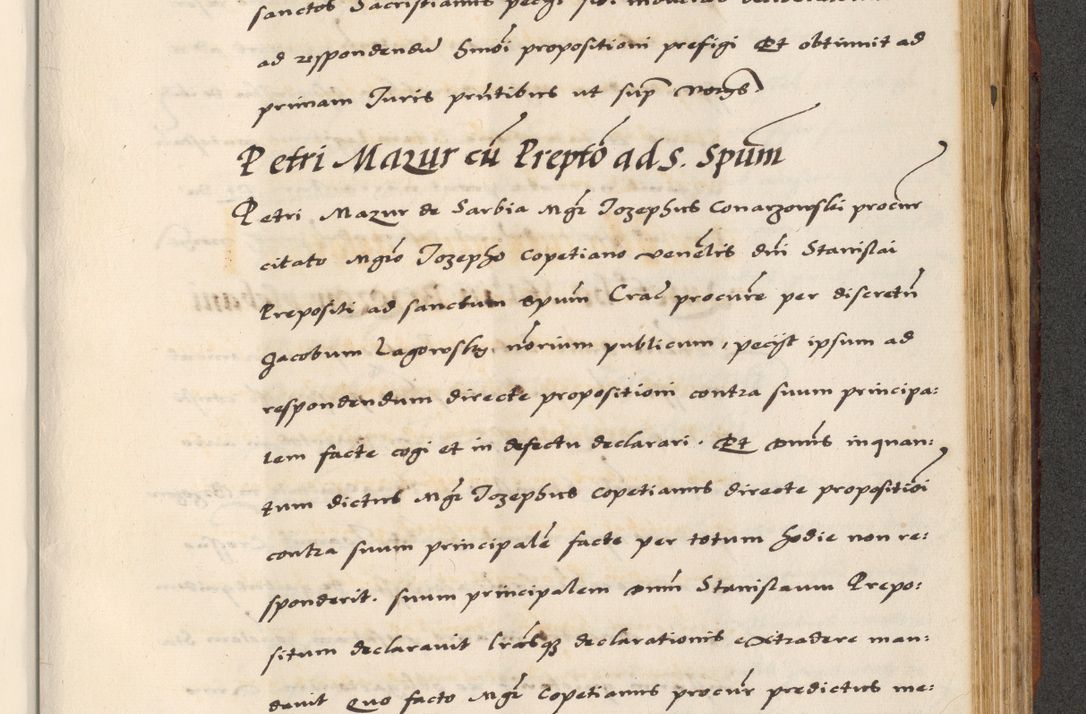 sanctos Sacristianus
ad respondendũ hmõi propositioni prefigi Et obtinuit ad
primam Juris pñtibus ut supˢ
Petri Mazur cũ Prepto ad s. Spũm
Petri Mazur de Sarbia Mgr̃ Jozephus Conarzowski procur
citato Mgrõ Jozepho Copetiano veñelis dñi Stanislai
Prepositi ad sanctum Spũm Crac̃ procurẽ per discretũ
Jacobum Lagowsky, nõrium publicum, pecijt ipsum ad
respondendum directe propositioni contra suum principa:
lem facte cogi et in defectu declarari. Et Dominus inquan:
tum dictus Mgr̃ Jozephus Copetianus directe propositiõi
contra suum principalẽ facte per totum hodie non re:
sponderit. suum principalem Dnũm Stanislaum Prepo:
situm declaravit lr̃asq̃ declarationis extradere man:
davit Quo facto Mgr̃ Copetianus procur̃ predictus me: